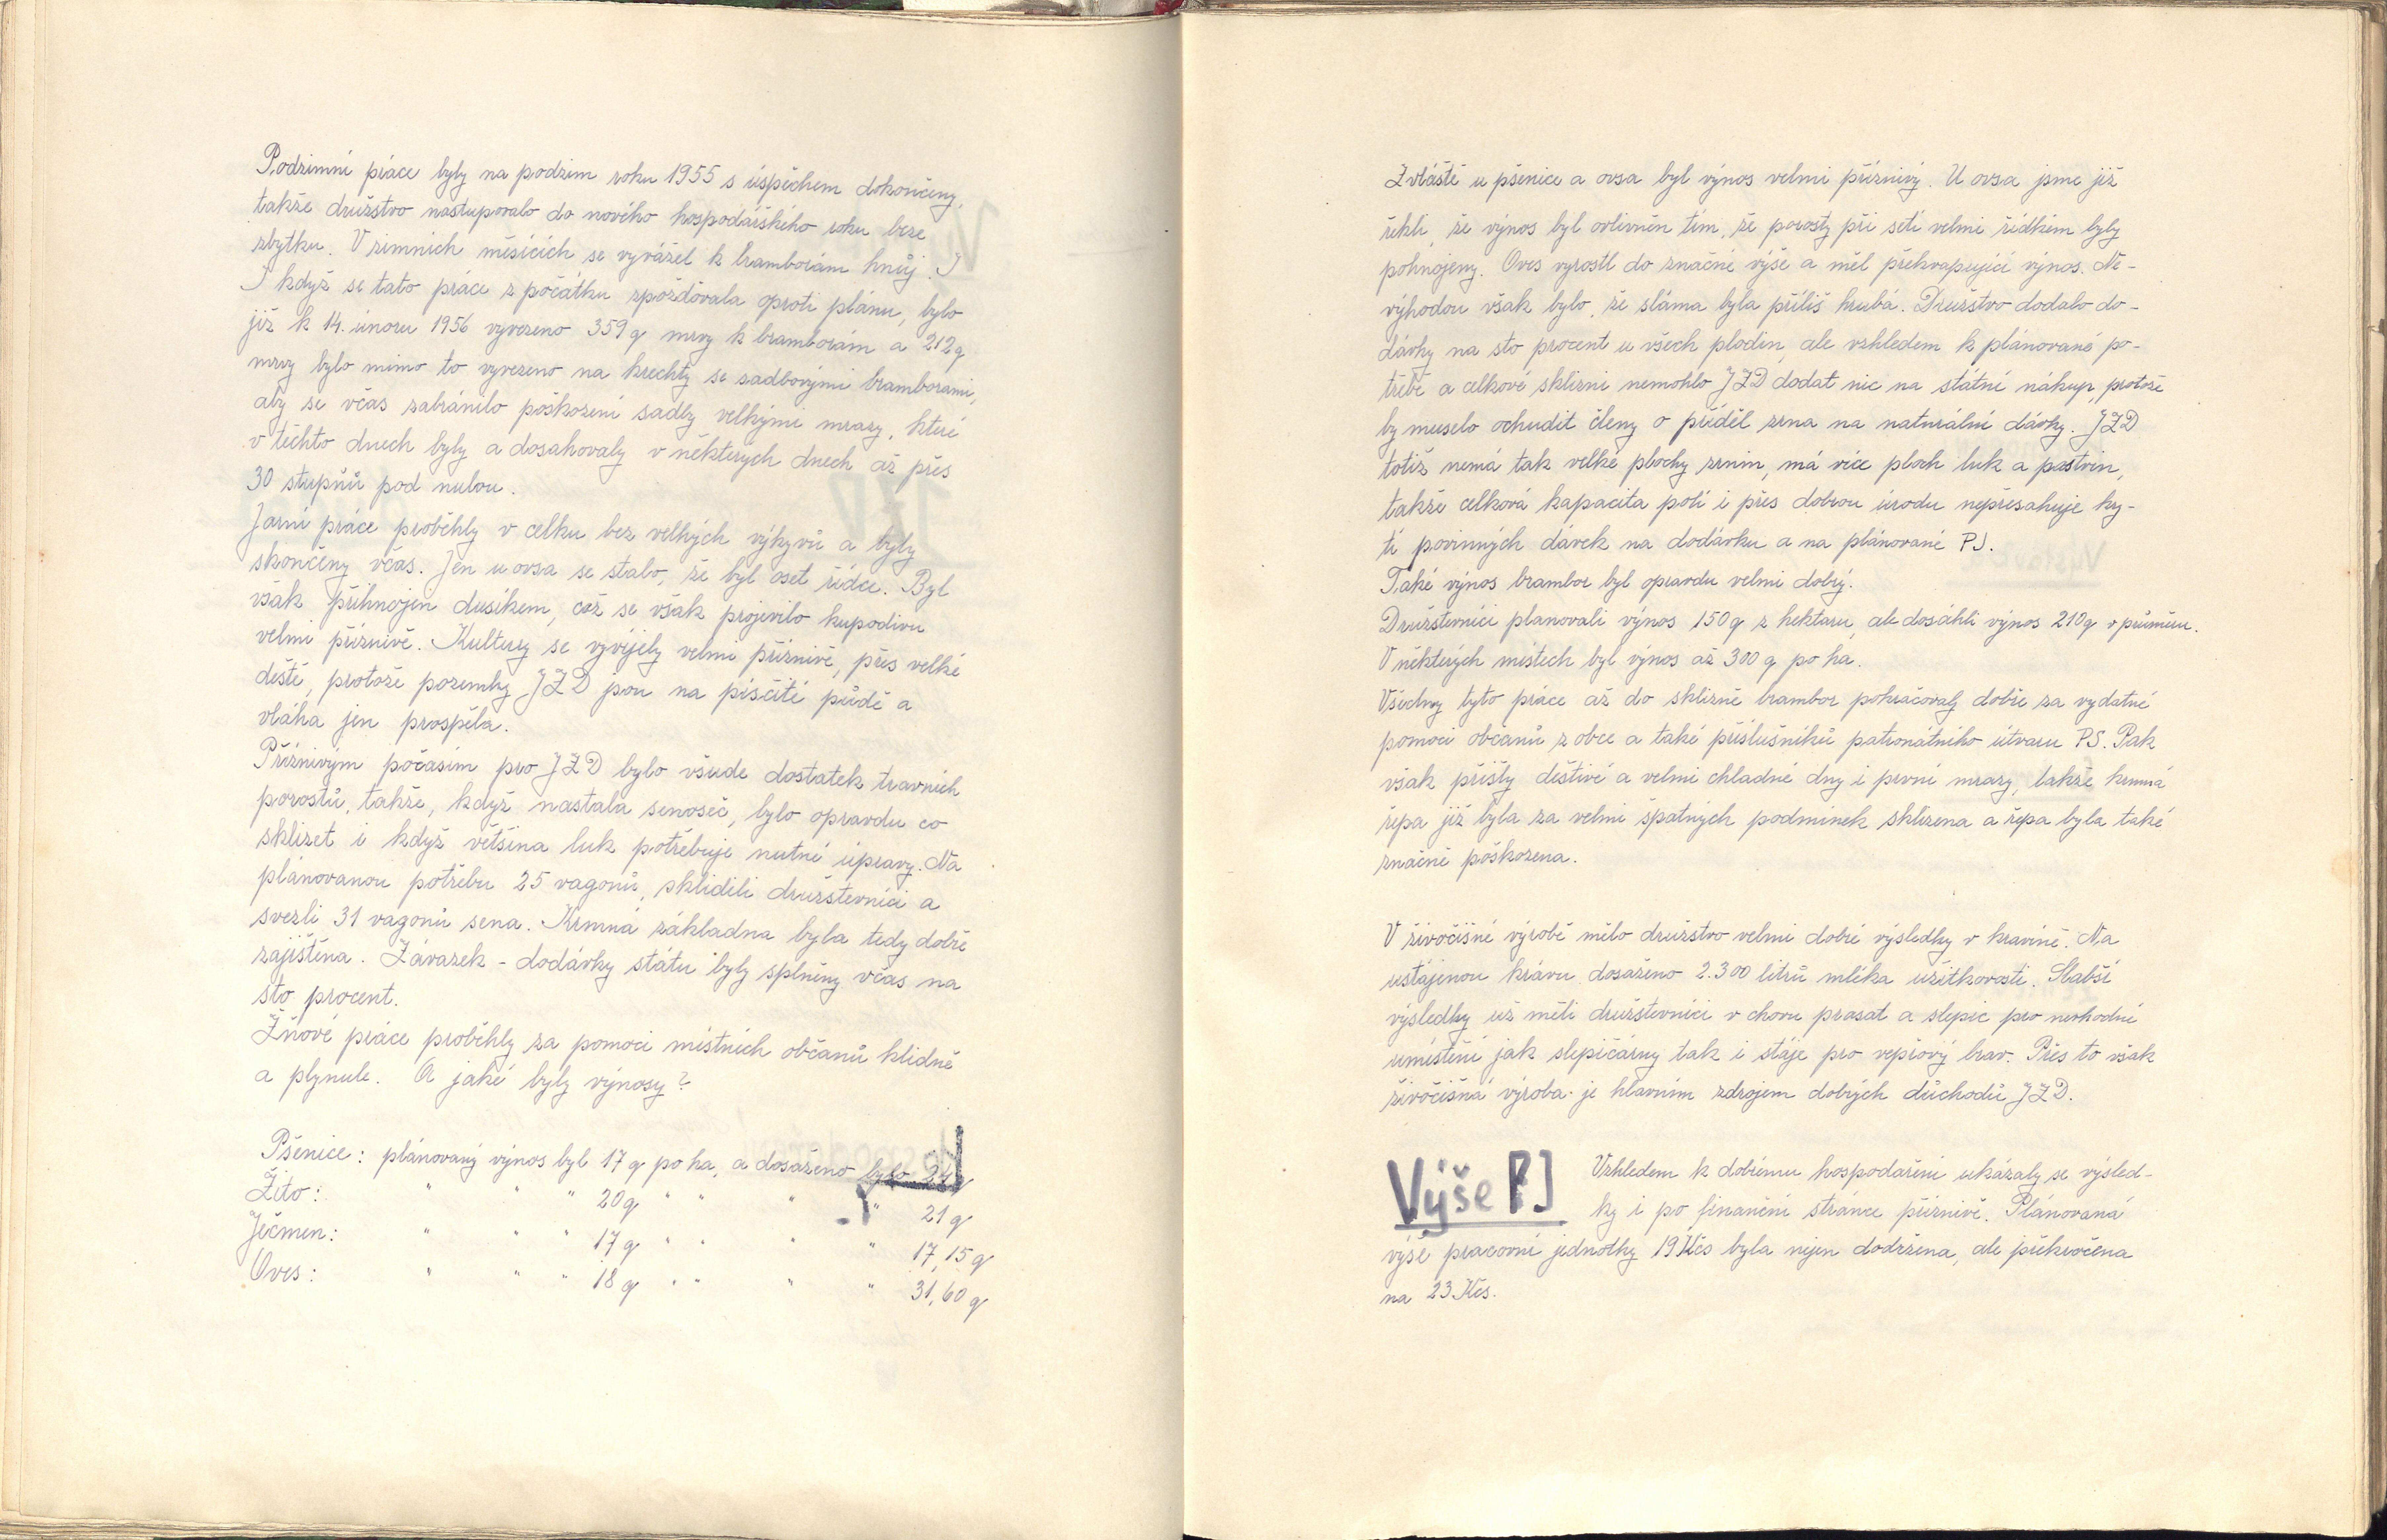 Podzimní práce byly na podzim roku 1955 s úspěchem dokončeny,
takže družstvo nastupovalo do nového hospodářského roku beze
zbytku. V zimních měsících se vyvážel k bramborám hnůj. I
I když se tato práce z počátku zpožďovala oproti plánu, bylo
již k 14. únoru 1956 vyvezeno 359 q mrvy k bramborám a 212 q
mrvy bylo mimo to vyvezeno na krechty se sadbovými bramborami,
aby se včas zabránilo poškození sadby velkými mrazy, které
v těchto dnech byly a dosahovaly v některých dnech až přes
30 stupňů pod nulou.
Jarní práce proběhly v celku bez velkých výkyvů a byly
skončeny včas. Jen u ovsa se stalo, že byl oset řídce. Byl
však přihnojen dusíkem, což se však projevilo kupodivu
velmi příznivě. Kultury se vyvíjely velmi příznivě, přes velké
deště, protože pozemky JZD jsou na písčité půdě a
vláha jen prospěla.
Příznivým počasím pro JZD bylo všude dostatek travních
porostů, takže, když nastala senoseč, bylo opravdu co
sklízet i když většina luk potřebuje nutné úpravy. Na
plánovanou potřebu 25 vagonů, sklidili družstevníci a
svezli 31 vagonů sena. Krmná základna byla tedy dobře
zajištěna. Závazek - dodávky státu byly splněny včas na
sto procent.
Žňové práce proběhly za pomoci místních občanů klidně
a plynule. A jaké byly výnosy?
Pšenice: plánovaný výnos byl 17 q po ha, a dosaženo bylo
Žito: " " " 20 q " " " " 21 q
Ječmen: " " " 17 q " " " " 17,15 q
Oves: " " " 18 q " " " " 31,60 q
Zvláště u pšenice a ovsa byl výnos velmi příznivý. U ovsa jsme již
řekli, že výnos byl ovlivněn tím, že porosty při setí velmi řídkém byly
pohnojeny. Oves vyrostl do značné výše a měl překvapující výnos. Ne-
výhodou však bylo, že sláma byla příliš hrubá. Družstvo dodalo do-
dávky na sto procent u všech plodin, ale vzhledem k plánované po-
třebě a celkové sklizni nemohlo JZD dodat nic na státní nákup, protože
by muselo ochudit členy o příděl zrna na naturální dávky. JZD
totiž nemá tak velké plochy zrnin, má více ploch luk a pastvin,
takže celková kapacita polí i přes dobrou úrodu nepřesahuje ky-
tí povinných dávek na dodávku a na plánované PJ.
Také výnos brambor byl opravdu velmi dobrý.
Družstevníci planovali výnos 150 q z hektaru, ale dosáhli výnos 210 q v průměru.
V některých místech byl výnos až 300 q po ha.
Všechny tyto práce až do sklizně brambor pokračovaly dobře za vydatné
pomoci občanů z obce a také příslušníků patronátního útvaru PS. Pak
však přišly deštivé a velmi chladné dny i první mrazy, takže krmná
řepa již byla za velmi špatných podmínek sklizena a řepa byla také
značně poškozena.
V živočišné výrobě mělo družstvo velmi dobré výsledky v kravíně. Na
ustájenou krávu dosaženo 2.300 litrů mléka užitkovosti. Slabší
výsledky už měli družstevníci v chovu prasat a slepic pro nevhodné
umístění jak slepičárny tak i stáje pro vepřový brav. Přes to však
živočišná výroba je hlavním zdrojem dobrých důchodů JZD.
Výše PJ
Vzhledem k dobrému hospodaření ukázaly se výsled-
ky i po finanční stránce příznivě. Plánovaná
výše pracovní jednotky 19 Kčs byla nejen dodržena, ale překročena
na 23 Kčs.